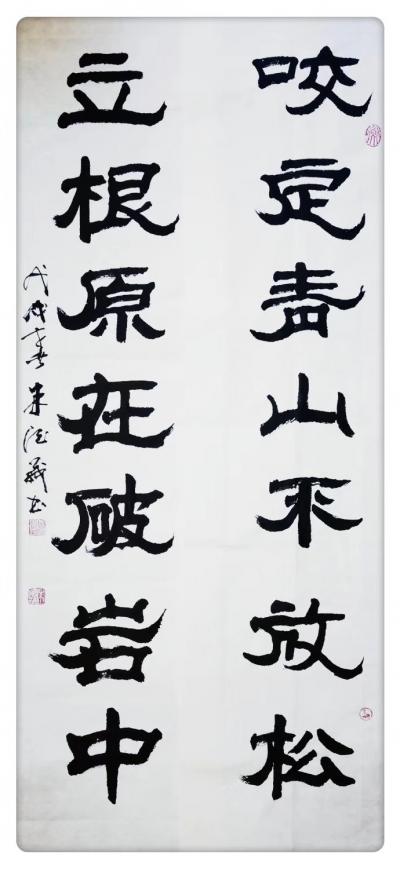 咬定青山不放松
立根原在破岩中
戊戌春朱德義书